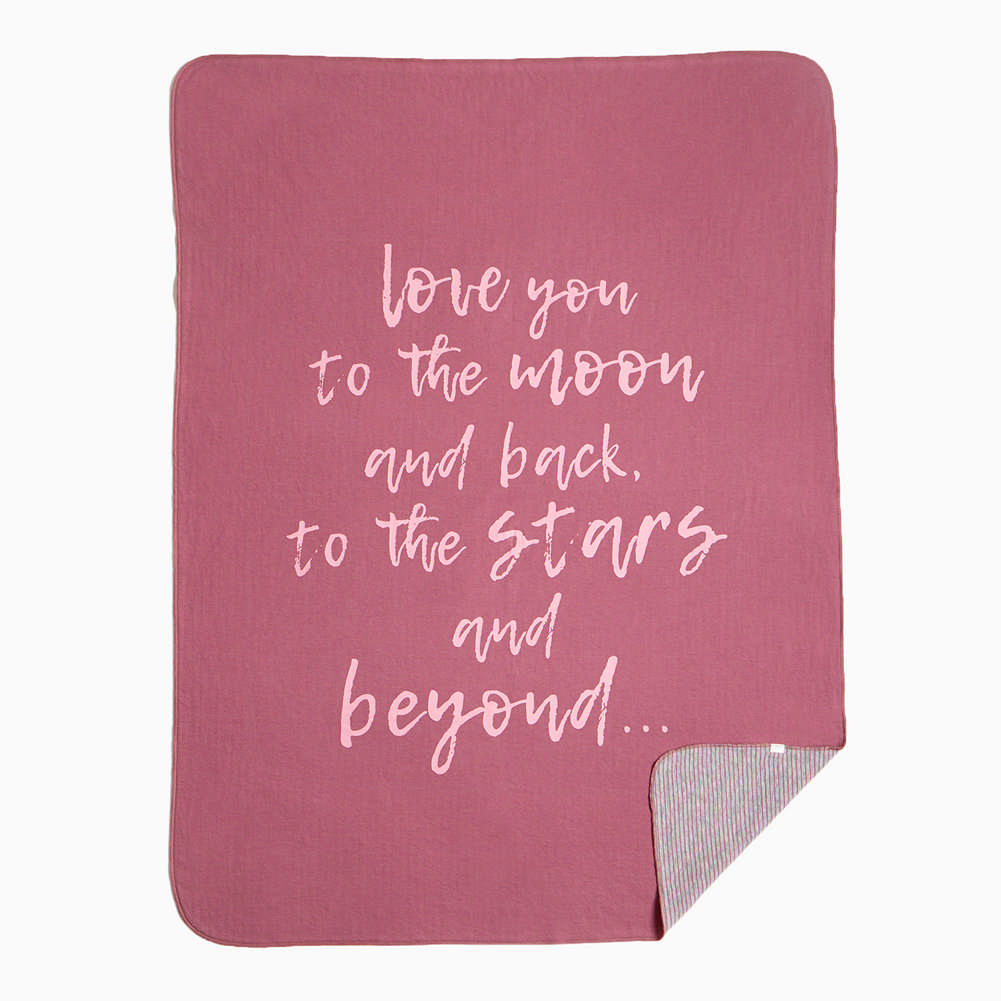 love you
to the moon
and back,
to the stars
and
beyond...